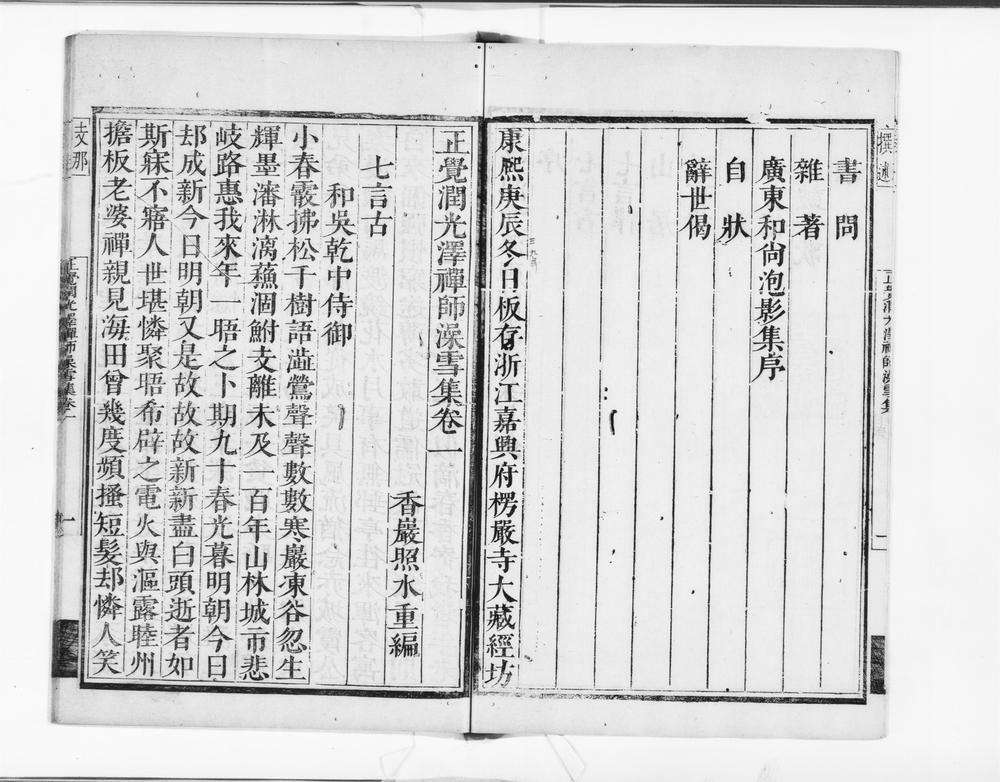 撰述
書問
雜著
廣東和尙泡影集序
自狀
辭世偈
康熙庚辰冬日板存浙江嘉興府楞嚴寺大藏經坊
正覺潤光澤禪師澡雪集卷一
香巖照水重編
七言古
和吳乾中侍御
小春霞拂松千樹語澁鶯聲聲數數寒巖凍谷忽生
輝墨瀋淋漓蘇涸鮒支離未及一百年山林城市悲
岐路惠我來年一晤之卜期九十春光暮明朝今日
却成新今日明朝又是故故故新新盡白頭逝者如
斯寐不寤人世堪憐聚晤希辟之電火與漚露睦州
擔板老婆禪親見海田曾幾度頻搔短髮却憐人笑
支那
正覺潤光澤禪師澡雪集卷一
一